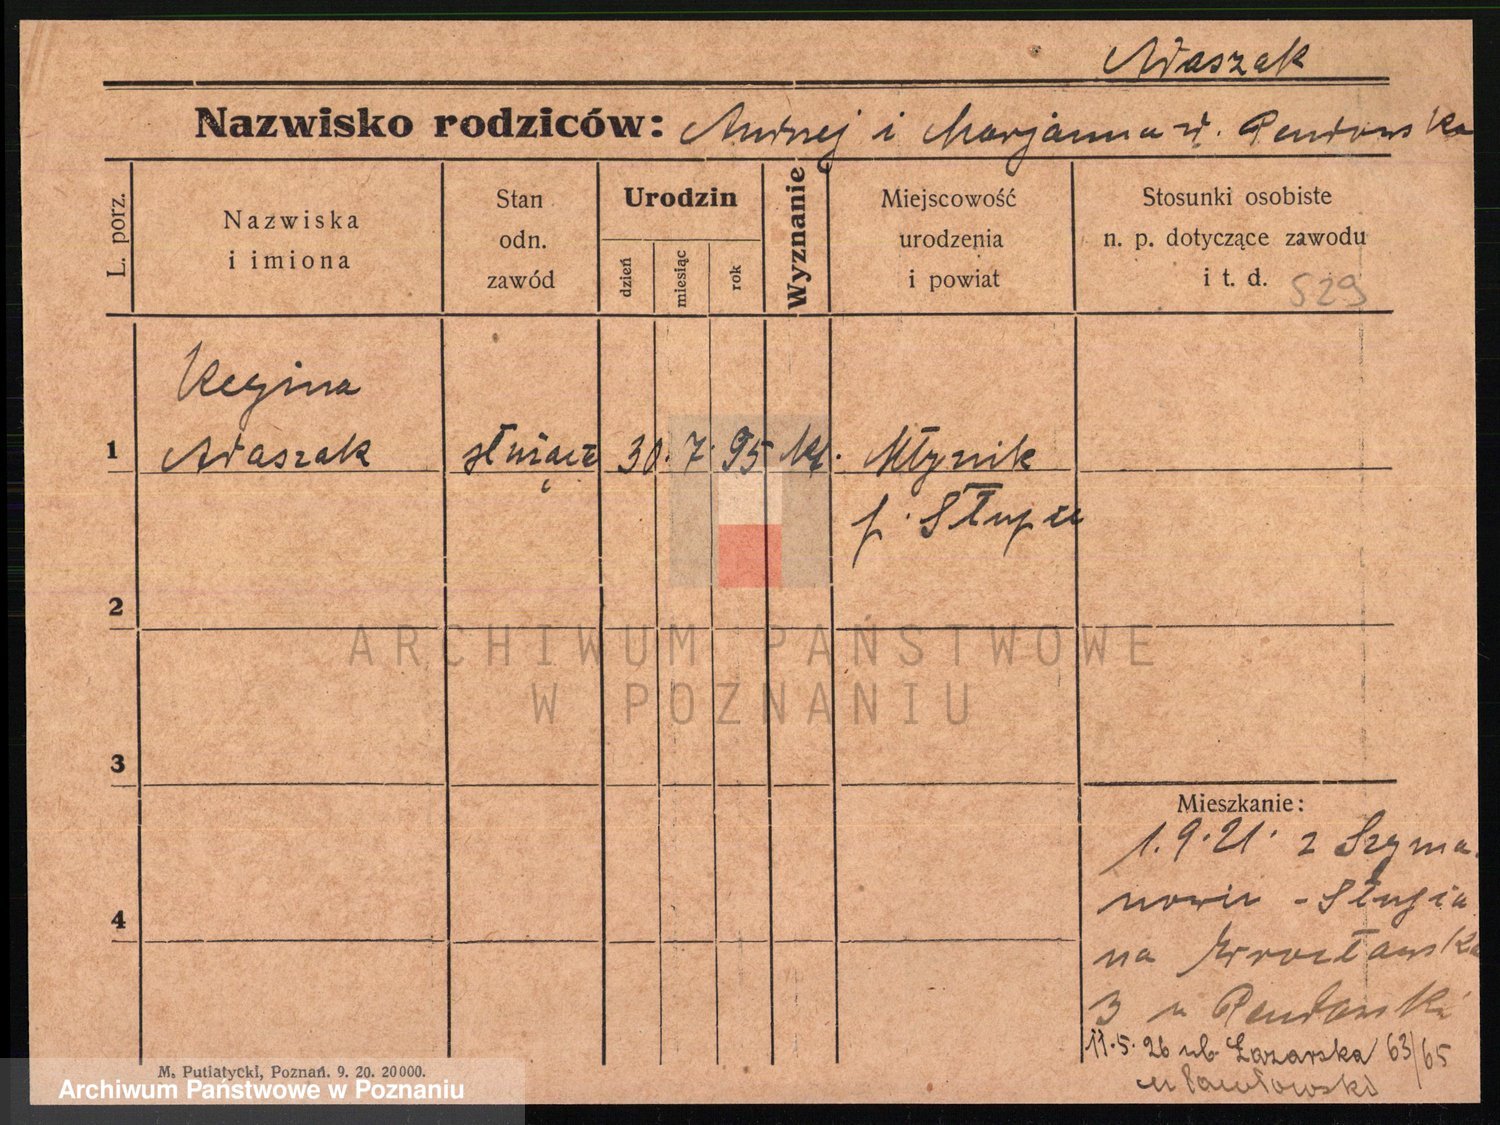 Adaszak
Nazwisko rodziców: Andrzej i Marjanna z d.
L. porz.
Nazwiska
i imiona
Stan
odn.
zawód
Urodzin
dzień
miesiąc
rok
Wyznanie
Miejscowość
urodzenia
i powiat
Stosunki osobiste
n. p. dotyczące zawodu
i t. d. 529
Regina
1 Adaszak służąca 30. 7. 95 kt. Młynik
p. Słupca
2
3
4
Mieszkanie:
1. 9. 21. z Szyma
nowic - Słupca
na Wrocławska
3 u
11. 5. 26 ul. Łazarska 63/65
u Pawłowski
M. Putiatycki, Poznań. 9. 20. 20000.
ARCHIWUM PAŃSTWOWE
W POZNANIU
Archiwum Państwowe w Poznaniu